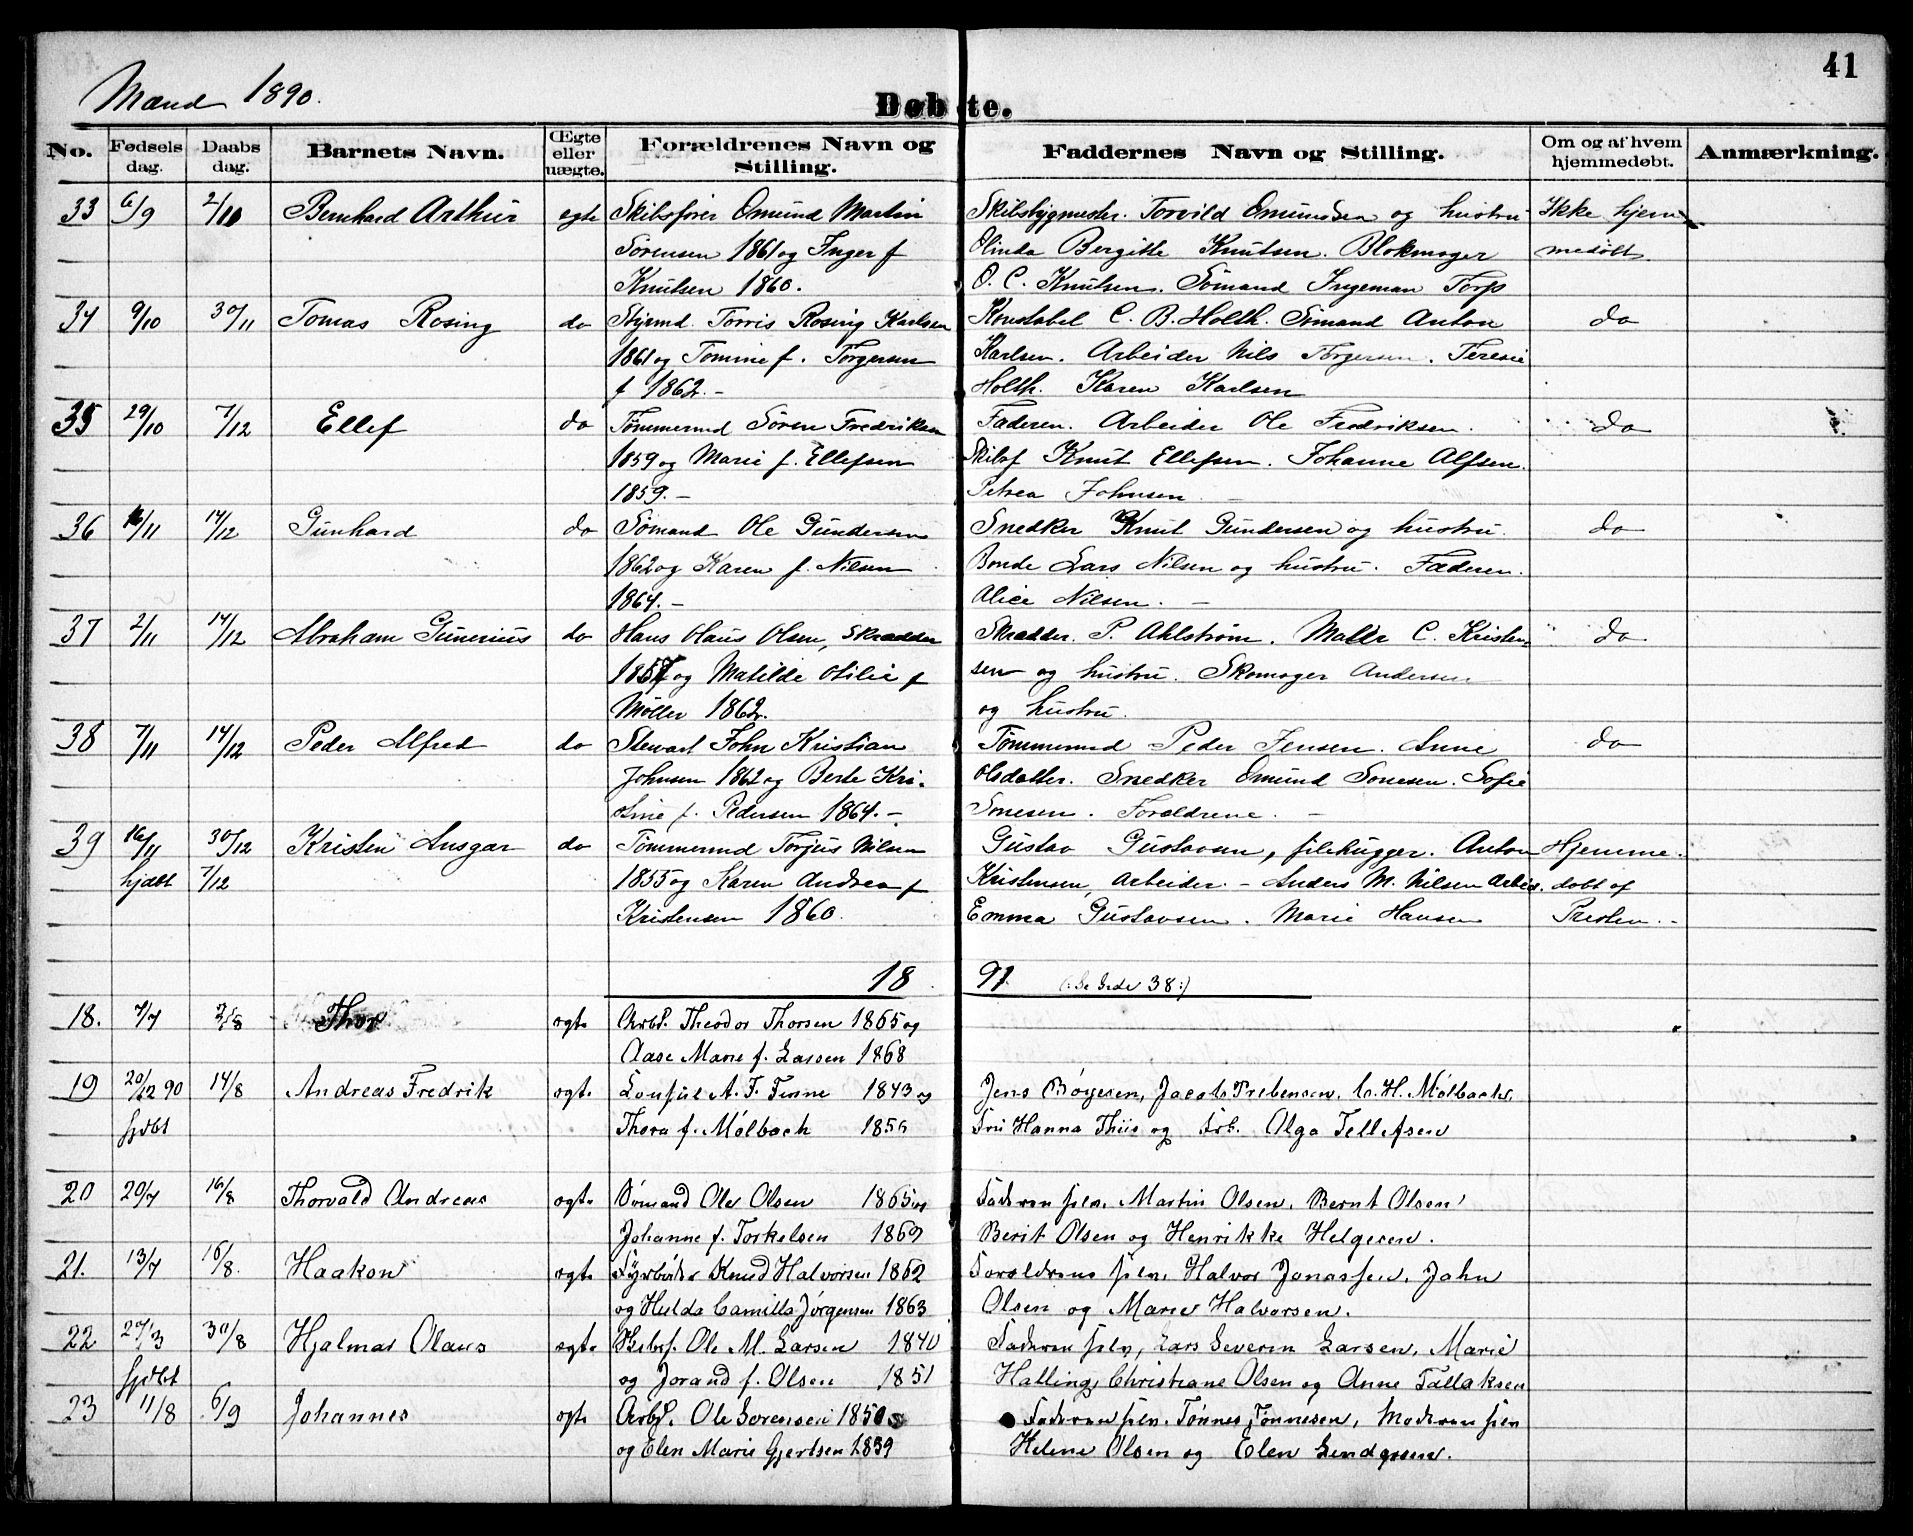 41
Mænd 1890.
Døbte.
No. Fødsels dag. Daabs dag. Barnets Navn. Ægte eller uægte. Forældrenes Navn og Stilling. Faddernes Navn og Stilling. Om og af hvem hjemmedøbt. Anmærkning.
33 6/9 2/10 Bernhard Arthur egte Skibsfører Omund Martin Skibsbygmester. Torvild Omundsen og hustru Ikke hjem
Sørensen 1861 og Inger f Olinda Bergitte Knutsen. Blokmager medøbt
Knutsen 1860. O. C. Knutsen. Sømand Ingeman Torp
34 9/10 30/11 Tomas Rosing do Styrmd. Torris Rosing Karlsen Konstabel C. B. Holth. Sømand Anton do
1861 og Tomine f. Torgersen Karlsen. Arbeider Nils Torgersen. Teresie
f 1862.- Holth. Karen Karlsen
35 29/10 7/12 Ellef do Tømmermd Søren Fredriksen Faderen. Arbeider Ole Fredriksen. do
1859 og Marie f. Ellefsen Skibsf Knut Ellefsen. Johanne Alfsen.
1859.- Petrea Johnsen. -
36 16/11 14/12 Gunhard do Sømand Ole Gundersen Snedker Knut Gundersen og hustru. do
1862 og Karen f. Nilsen Bonde Lars Nilsen og hustru. Faderen.
1864.- Alice Nilsen. -
37 2/11 14/12 Abraham Gunerius do Hans Olaus Olsen, Skrædder Skrædder. P. Ahlstrøm. Maler C. Kristen- do
1857 og Matilde Otilie f sen og hustru. Skomager Andersen
Møller 1862. og hustru.
38 7/11 14/12 Peder Alfred do Stewart John Kristian Tømmermd Peder Jensen. Anne do
Johnsen 1862 og Berte Kri- Olsdatter. Snedker Omund Sonesen. Sofie
stine f. Pedersen 1864.- Sonesen. Forældrene. -
39 16/11 30/12 Kristen Ansgar do Tømmermd Torjus Nilsen Gustav Gustavsen, filehugger. Anton Hjemme-
hjdbt 7/12 1855 og Karen Andrea f Kristensen, Arbeider. - Anders M. Nilsen Arbeid. døbt af
Kristensen 1860. Emma Gustavsen. Marie Hansen Presten.-
18 91 (: Se Side 38:)
18. 7/7 2/8 Thor egte Arbd. Theodor Thorsen 1865 og
Aase Marie f. Larsen 1868
19 20/12 90 14/8 Andreas Fredrik egte Konsul A. F. Finne 1843 og Jens Børgesen, Jacob Prebensen. C. H. Mølbach.
hjdbt Thora f. Mølbach Fru Hanna Thiis og Frk. Olga Tellefsen
20 20/7 16/8 Thorvald Andreas egte Sømand Ole Olsen 1865 og Faderen selv. Martin Olsen. Bernt Olsen
Johanne f. Torkelsen 1869 Berit Olsen og Henrikke Helgesen.
21. 13/7 16/8. Haakon egte Fyrbøder Knud Halvorsen 1862 Forældrene selv. Halvor Jonassen. John
og Hulda Camilla Jørgensen 1863 Olsen og Marie Halvorsen.
22 27/3 30/8 Hjalmar Olaus egte Skibsf. Ole M. Larsen 1840 Faderen selv, Lars Severin Larsen, Marie
hjdbt og Jorand f. Olsen 1851 Halling, Christiane Olsen og Anne Tallaksen
23 11/8 6/9 Johannes egte Arbd. Ole Sørensen 1850 Faderen selv. Tønnes Tønnesen, Moderen selv
og Elen Marie Gjertsen 1859 Helene Olsen og Elen Lindgreen.